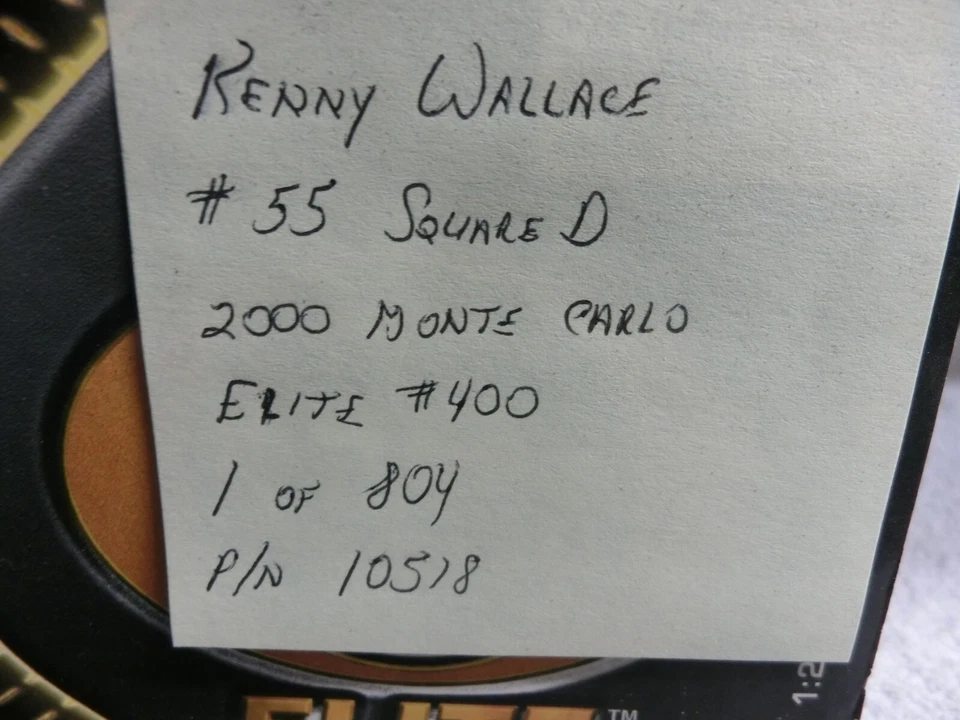 KENNY WALLACE
# 55 SQUARE D
2000 MONTE CARLO
ELITE #400
1 OF 804
P/N 10518
1:2
TM